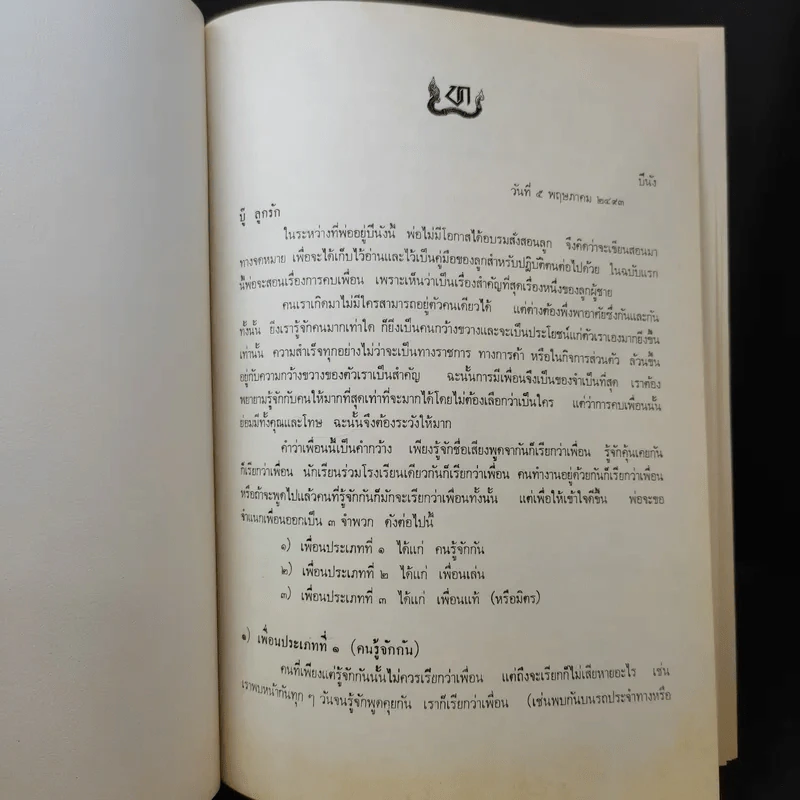 ปีนัง
วันที่ ๕ พฤษภาคม ๒๔๙๓
บู๊ ลูกรัก
ในระหว่างที่พ่ออยู่ปีนังนี้ พ่อไม่มีโอกาสได้อบรมสั่งสอนลูก จึงคิดว่าจะเขียนสอนมา
ทางจดหมาย เพื่อจะได้เก็บไว้อ่านและไว้เป็นคู่มือของลูกสำหรับปฏิบัติตนต่อไปด้วย ในฉบับแรก
นี้พ่อจะสอนเรื่องการคบเพื่อน เพราะเห็นว่าเป็นเรื่องสำคัญที่สุดเรื่องหนึ่งของลูกผู้ชาย
คนเราเกิดมาไม่มีใครสามารถอยู่ตัวคนเดียวได้ แต่ต่างต้องพึ่งพาอาศัยซึ่งกันและกัน
ทั้งนั้น ยิ่งเรารู้จักคนมากเท่าใด ก็ยิ่งเป็นคนกว้างขวางและจะเป็นประโยชน์แก่ตัวเราเองมากยิ่งขึ้น
เท่านั้น ความสำเร็จทุกอย่างไม่ว่าจะเป็นทางราชการ ทางการค้า หรือในกิจการส่วนตัว ล้วนขึ้น
อยู่กับความกว้างขวางของตัวเราเป็นสำคัญ ฉะนั้นการมีเพื่อนจึงเป็นของจำเป็นที่สุด เราต้อง
พยายามรู้จักกับคนให้มากที่สุดเท่าที่จะมากได้โดยไม่ต้องเลือกว่าเป็นใคร แต่ว่าการคบเพื่อนนั้น
ย่อมมีทั้งคุณและโทษ ฉะนั้นจึงต้องระวังให้มาก
คำว่าเพื่อนนี้เป็นคำกว้าง เพียงรู้จักชื่อเสียงพูดจากันก็เรียกว่าเพื่อน รู้จักคุ้นเคยกัน
ก็เรียกว่าเพื่อน นักเรียนร่วมโรงเรียนเดียวกันก็เรียกว่าเพื่อน คนทำงานอยู่ด้วยกันก็เรียกว่าเพื่อน
หรือถ้าจะพูดไปแล้วคนที่รู้จักกันก็มักจะเรียกว่าเพื่อนทั้งนั้น แต่เพื่อให้เข้าใจดีขึ้น พ่อจะขอ
จำแนกเพื่อนออกเป็น ๓ จำพวก ดังต่อไปนี้
๑) เพื่อนประเภทที่ ๑ ได้แก่ คนรู้จักกัน
๒) เพื่อนประเภทที่ ๒ ได้แก่ เพื่อนเล่น
๓) เพื่อนประเภทที่ ๓ ได้แก่ เพื่อนแท้ (หรือมิตร)
๑) เพื่อนประเภทที่ ๑ (คนรู้จักกัน)
คนที่เพียงแต่รู้จักกันนั้นไม่ควรเรียกว่าเพื่อน แต่ถึงจะเรียกก็ไม่เสียหายอะไร เช่น
เราพบหน้ากันทุก ๆ วันจนรู้จักพูดคุยกัน เราก็เรียกว่าเพื่อน (เช่นพบกันบนรถประจำทางหรือ